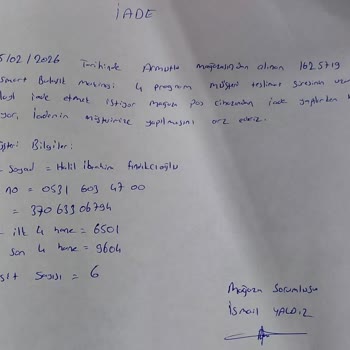 İADE
5/02/2026 Tarihinde Armutlu mağazasından alınan 1625719
smart Bulaşık makinesi 4 program müşteri teslimat süresinin uzun
iade etmek istiyor mağaza pos cihazından iade yapılırken
yor, İadenin müşterimize yapılmasını arz ederiz.
şteri Bilgileri:
- soyad = Halil İbrahim Fındıkçıoğlu
no = 0531 603 47 00
= 37063306794
- ilk 4 hane = 6501
son 4 hane = 9604
sit Sayısı = 6
Mağaza Sorumlusu
İsmail YALDIZ